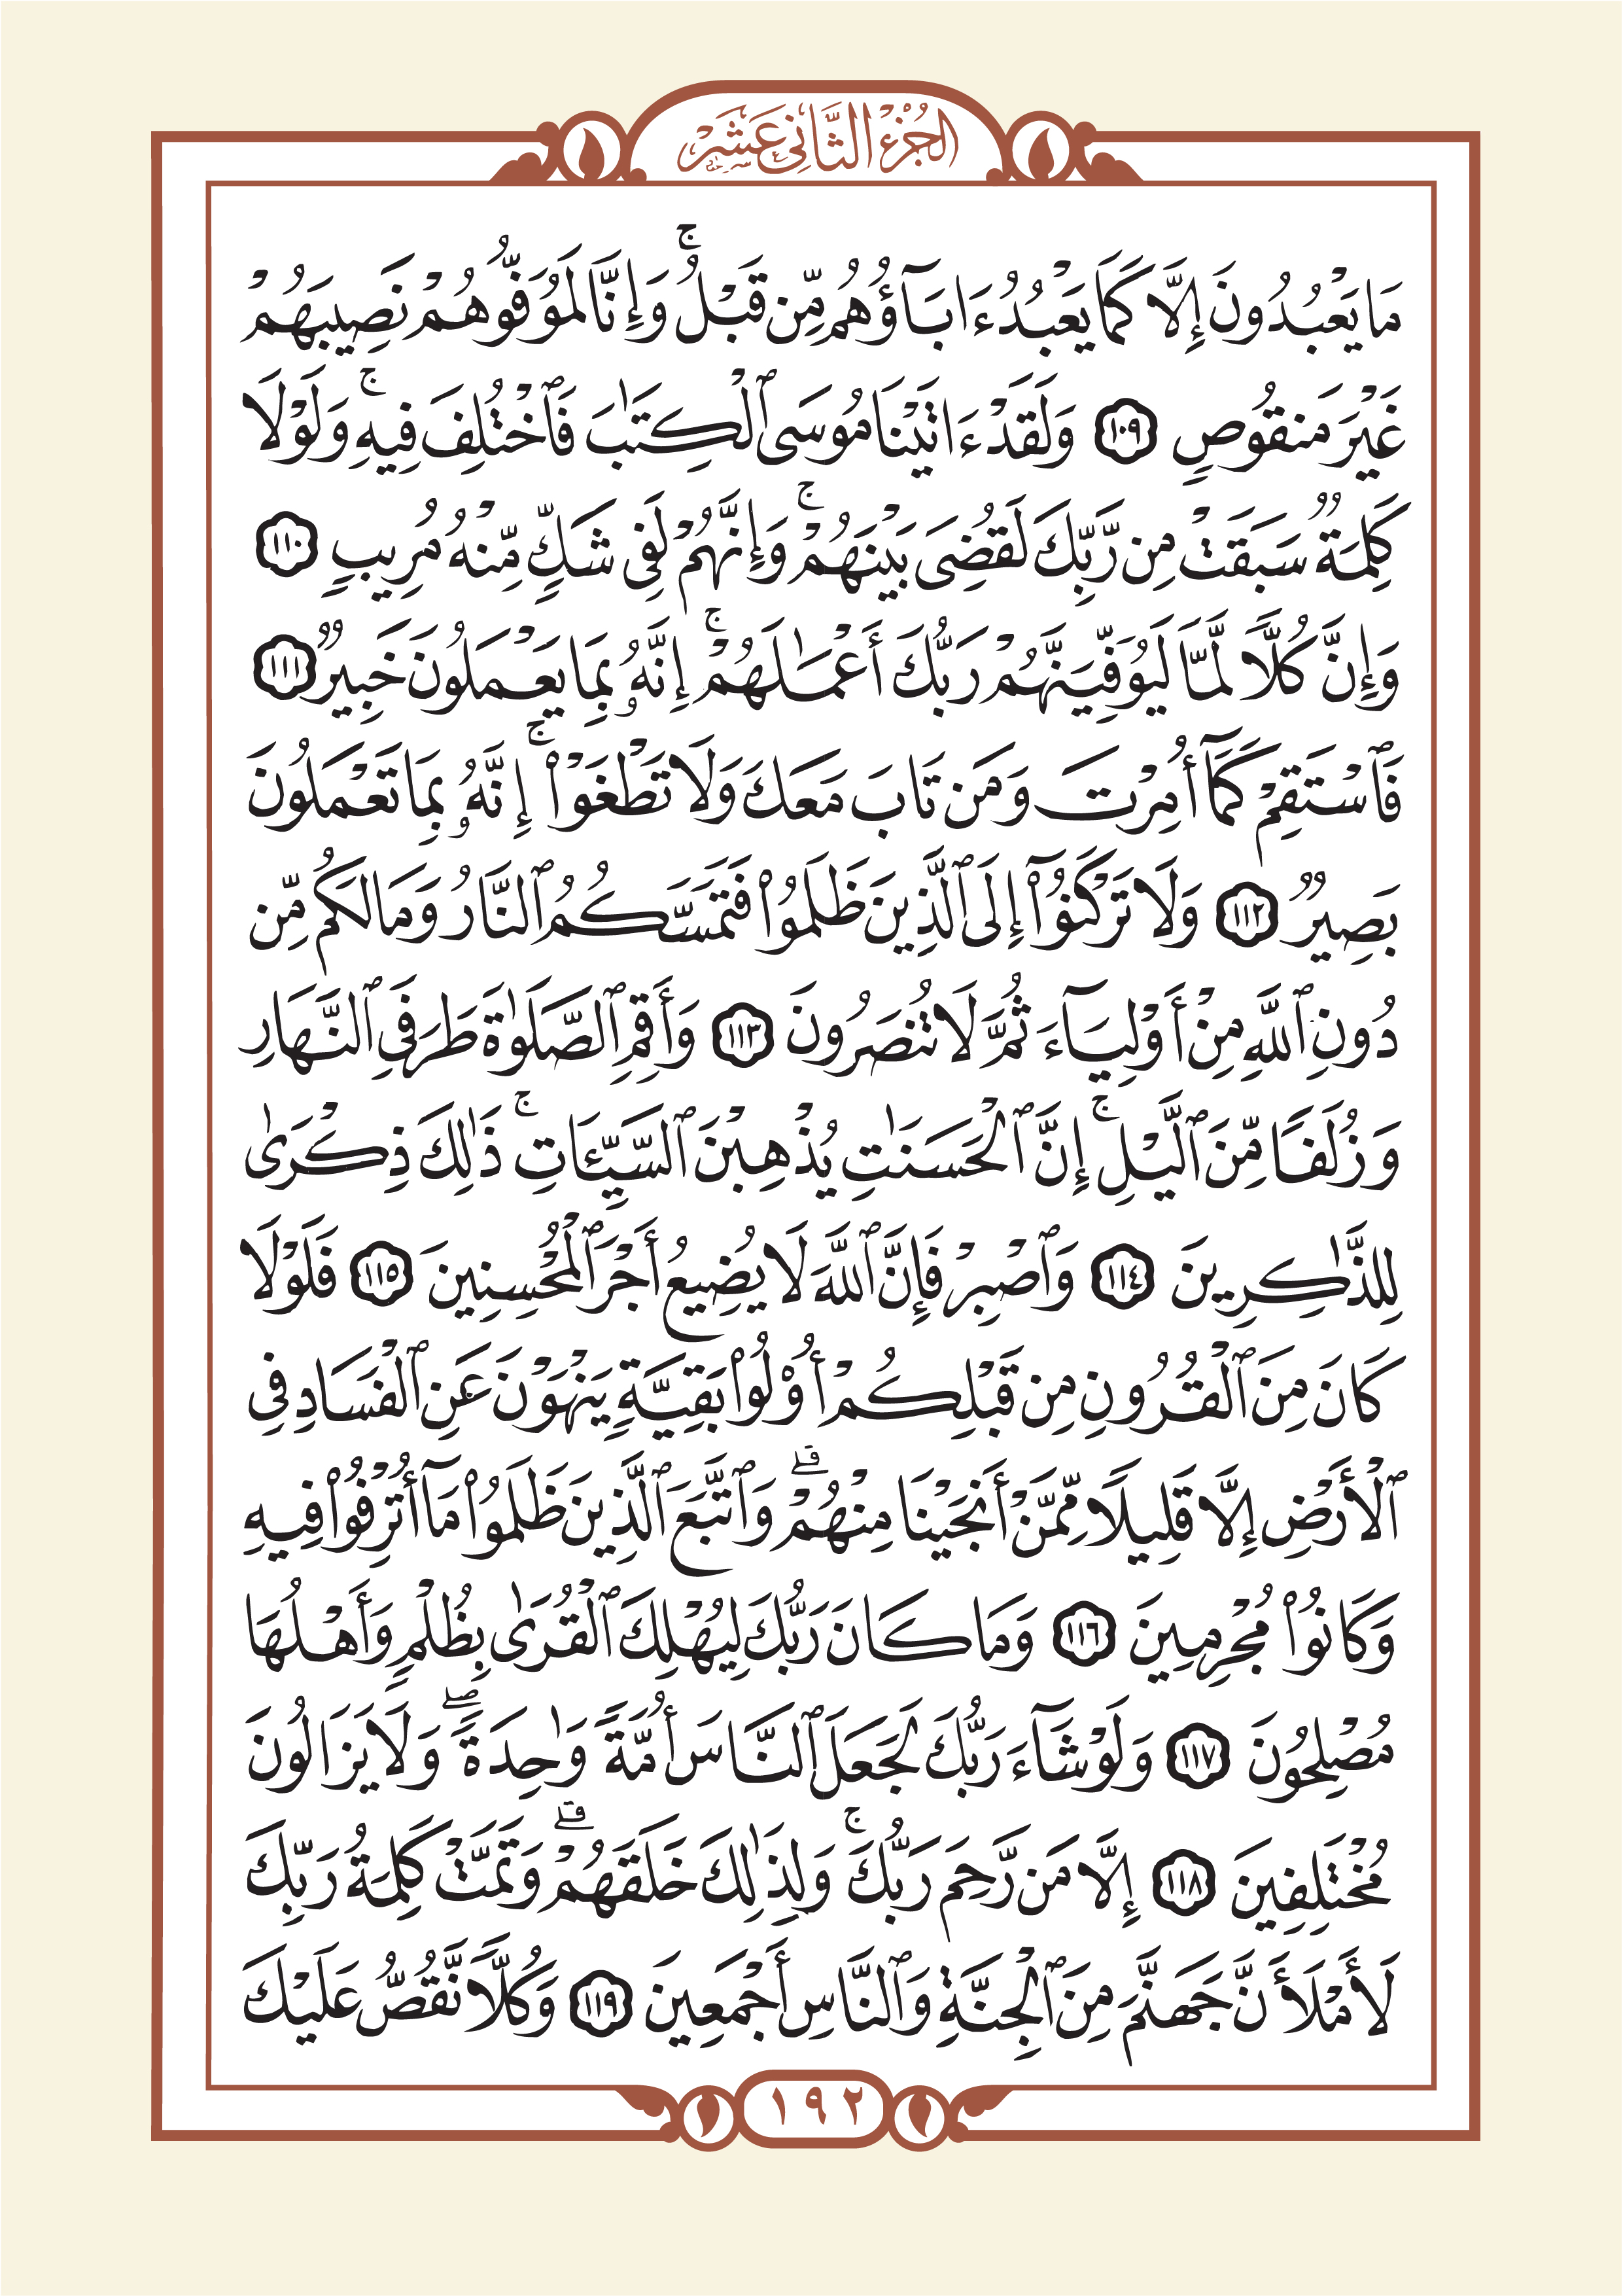 الجزء الثاني عشر
مَا يَعْبُدُونَ إِلَّا كَمَا يَعْبُدُ ءَابَآؤُهُم مِّن قَبْلُ ۚ وَإِنَّا لَمُوَفُّوهُمْ نَصِيبَهُمْ
غَيْرَ مَنقُوصٍ ١٠٩ وَلَقَدْ ءَاتَيْنَا مُوسَى ٱلْكِتَٰبَ فَٱخْتُلِفَ فِيهِ ۚ وَلَوْلَا
كَلِمَةٌ سَبَقَتْ مِن رَّبِّكَ لَقُضِىَ بَيْنَهُمْ ۚ وَإِنَّهُمْ لَفِى شَكٍّ مِّنْهُ مُرِيبٍ ١١٠
وَإِنَّ كُلًّا لَّمَّا لَيُوَفِّيَنَّهُمْ رَبُّكَ أَعْمَٰلَهُمْ ۚ إِنَّهُۥ بِمَا يَعْمَلُونَ خَبِيرٌ ١١١
فَٱسْتَقِمْ كَمَآ أُمِرْتَ وَمَن تَابَ مَعَكَ وَلَا تَطْغَوْا۟ ۚ إِنَّهُۥ بِمَا تَعْمَلُونَ
بَصِيرٌ ١١٢ وَلَا تَرْكَنُوٓا۟ إِلَى ٱلَّذِينَ ظَلَمُوا۟ فَتَمَسَّكُمُ ٱلنَّارُ وَمَا لَكُم مِّن
دُونِ ٱللَّهِ مِنْ أَوْلِيَآءَ ثُمَّ لَا تُنصَرُونَ ١١٣ وَأَقِمِ ٱلصَّلَوٰةَ طَرَفَىِ ٱلنَّهَارِ
وَزُلَفًا مِّنَ ٱلَّيْلِ ۚ إِنَّ ٱلْحَسَنَٰتِ يُذْهِبْنَ ٱلسَّيِّـَٔاتِ ۚ ذَٰلِكَ ذِكْرَىٰ
لِلذَّٰكِرِينَ ١١٤ وَٱصْبِرْ فَإِنَّ ٱللَّهَ لَا يُضِيعُ أَجْرَ ٱلْمُحْسِنِينَ ١١٥ فَلَوْلَا
كَانَ مِنَ ٱلْقُرُونِ مِن قَبْلِكُمْ أُو۟لُوا۟ بَقِيَّةٍ يَنْهَوْنَ عَنِ ٱلْفَسَادِ فِى
ٱلْأَرْضِ إِلَّا قَلِيلًا مِّمَّنْ أَنجَيْنَا مِنْهُمْ ۗ وَٱتَّبَعَ ٱلَّذِينَ ظَلَمُوا۟ مَآ أُتْرِفُوا۟ فِيهِ
وَكَانُوا۟ مُجْرِمِينَ ١١٦ وَمَا كَانَ رَبُّكَ لِيُهْلِكَ ٱلْقُرَىٰ بِظُلْمٍ وَأَهْلُهَا
مُصْلِحُونَ ١١٧ وَلَوْ شَآءَ رَبُّكَ لَجَعَلَ ٱلنَّاسَ أُمَّةً وَٰحِدَةً ۖ وَلَا يَزَالُونَ
مُخْتَلِفِينَ ١١٨ إِلَّا مَن رَّحِمَ رَبُّكَ ۚ وَلِذَٰلِكَ خَلَقَهُمْ ۗ وَتَمَّتْ كَلِمَةُ رَبِّكَ
لَأَمْلَأَنَّ جَهَنَّمَ مِنَ ٱلْجِنَّةِ وَٱلنَّاسِ أَجْمَعِينَ ١١٩ وَكُلًّا نَّقُصُّ عَلَيْكَ
١٩٢